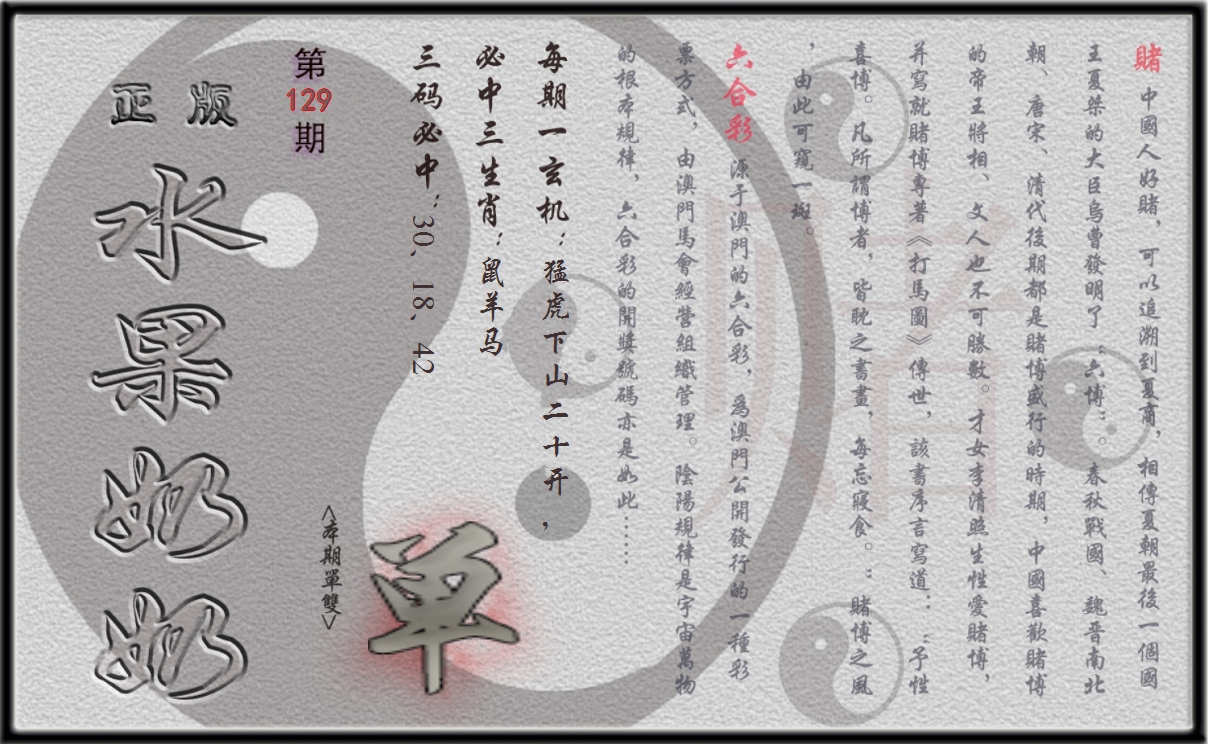 賭 中國人好賭，可以追溯到夏商，相傳夏朝最後一個國
王夏桀的大臣烏曹發明了：六博：。春秋戰國、魏晉南北
朝、唐宋、清代後期都是賭博盛行的時期，中國喜歡賭博
的帝王將相、文人也不可勝數。才女李清照生性愛賭博，
并寫就賭博專著《打馬圖》傳世，該書序言寫道：：予性
喜博。凡所謂博者，皆耽之書畫，每忘寢食。：賭博之風
，由此可窺一斑。
六合彩 源于澳門的六合彩，爲澳門公開發行的一種彩
票方式，由澳門馬會經營組織管理。陰陽規律是宇宙萬物
的根本規律，六合彩的開獎號碼亦是如此……
每期一玄机：猛虎下山二十开，
必中三生肖：鼠羊马
三码必中：30、18、42
單
<本期單雙>
第129期
正版
水果奶奶